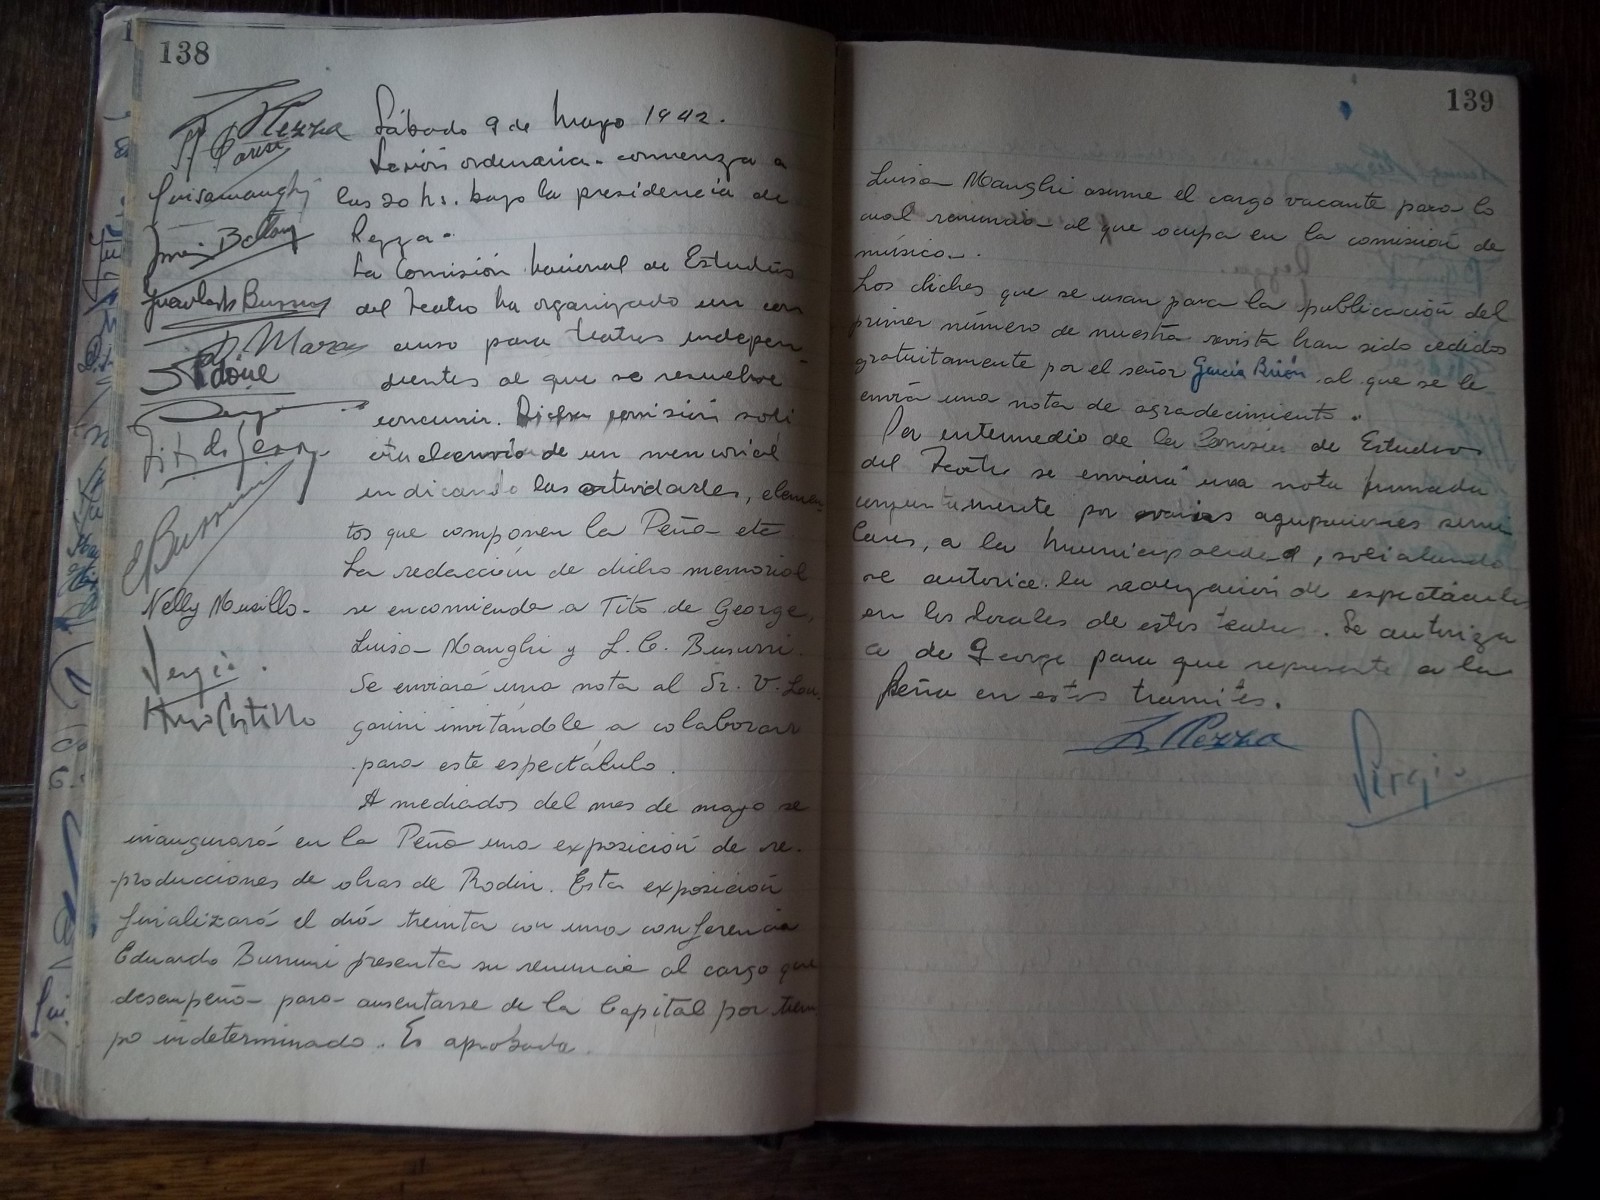 138
Sábado 9 de Mayo 1942.
Sesión ordinaria - comienza a
las 20 hs. bajo la presidencia de
Rezza -
La Comisión Nacional de Estudios
del Teatro ha organizado un con
curso para teatros indepen-
dientes al que se resuelve
concurrir. Dicha comisión soli
cita el envio de un memorial
indicando las actividades, elemen-
tos que componen la Peña etc
La redacción de dicho memorial
se encomienda a Tito de George,
Luisa Manghi y J. C. Busurri.
Se enviará una nota al Sr. V.
invitándole a colaborar
para este espectáculo.
A mediados del mes de mayo se
inaugurará en la Peña una exposición de re-
-producciones de obras de Rodin. Esta exposición
finalizará el día treinta con una conferencia
Eduardo presenta su renuncia al cargo que
desempeña para ausentarse de la Capital por tiem
po indeterminado. Es aprobada.
Rezza
Luisa Manghi
Tito de George
Nelly Musillo -
Sergio.
Hugo Castillo
139
Luisa Manghi asume el cargo vacante para lo
cual renuncia al que ocupa en la comisión de
música.
Los clichés que se usan para la publicación del
primer número de nuestra revista han sido cedidos
gratuitamente por el señor García al que se le
envía una nota de agradecimiento.
Por intermedio de la Comisión de Estudios
del Teatro se enviará una nota firmada
conjuntamente por varias agrupaciones simi
lares, a la Municipalidad, solicitando
se autorice la realización de espectáculos
en los locales de estos teatros. Se autoriza
a de George para que represente a la
Peña en estos tramites.
Rezza
Sergio